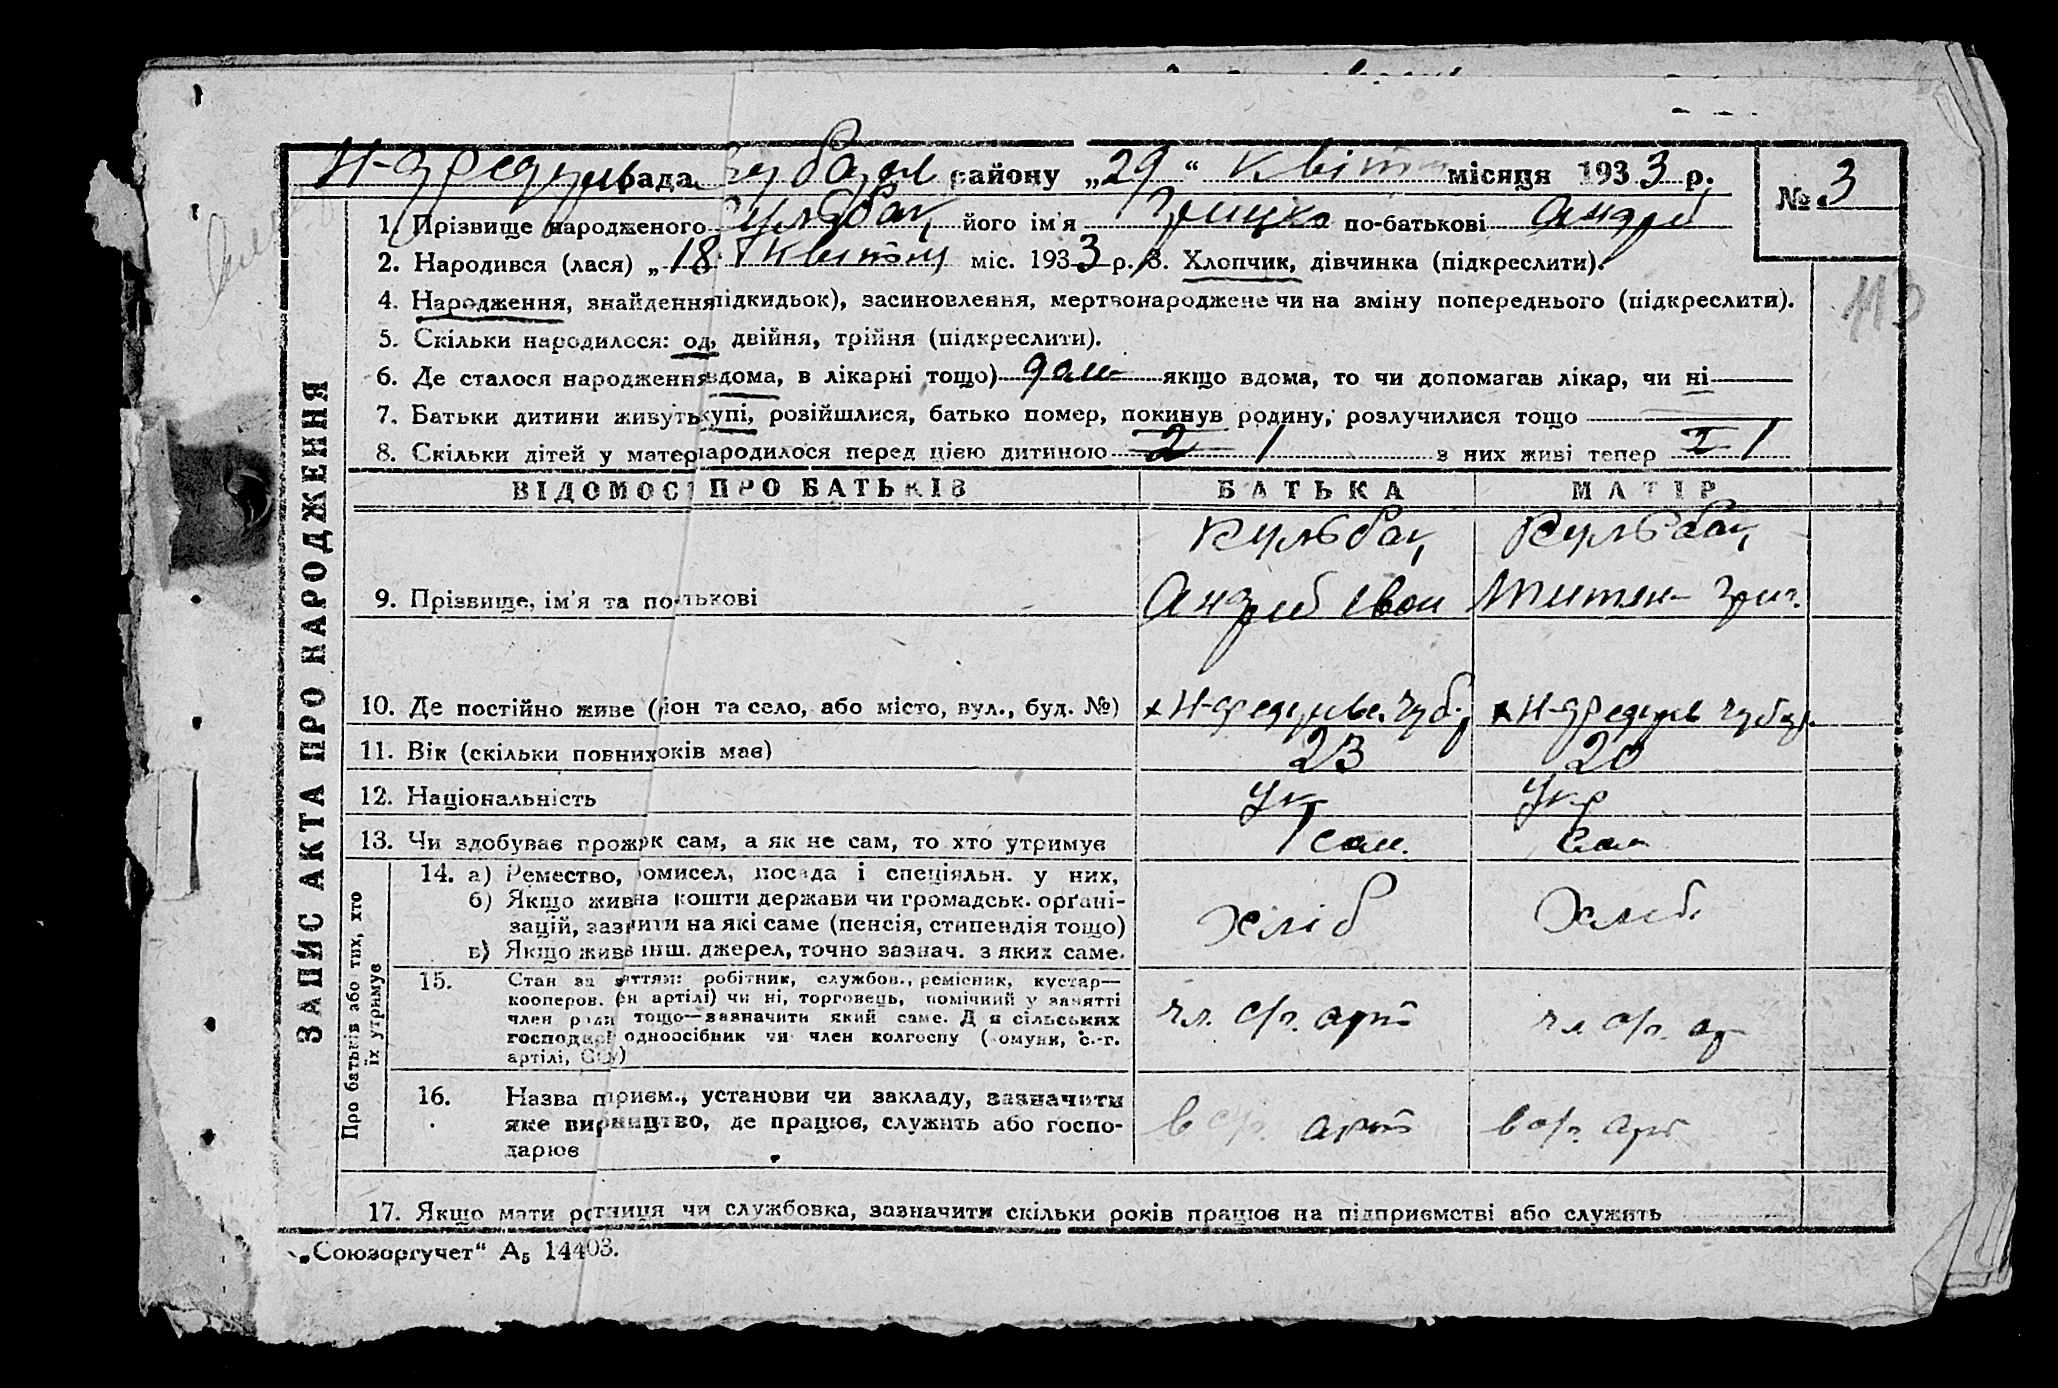 рада району „29“ Квітн місяця 1933 р. № 3
1. Прізвище народженого Кульбац його ім'я Грицко по-батькові Андрій
2. Народився (лася) „18 Квітня міс. 1933 р. 3. Хлопчик, дівчинка (підкреслити).
4. Народження, знайдення підкидьок), засиновлення, мертвонароджене чи на зміну попереднього (підкреслити).
5. Скільки народилося: од, двійня, трійня (підкреслити).
6. Де сталося народження вдома, в лікарні тощо) дом якщо вдома, то чи допомагав лікар, чи ні
7. Батьки дитини живуть купі, розійшлися, батько помер, покинув родину, розлучилися тощо
8. Скільки дітей у матері народилося перед цією дитиною 2 1 з них живі тепер 1
ВІДОМОС ПРО БАТЬКІВ БАТЬКА МАТІР
Кульбац Кульбац
9. Прізвище, ім'я та по-батькові Андрій Іван Григ.
10. Де постійно живе (район та село, або місто, вул., буд. №)
11. Вік (скільки повних років має) 23 20
12. Національність Укр Укр
13. Чи здобуває прожиток сам, а як не сам, то хто утримує сам. сам
14. а) Ремество, промисел, посада і спеціяльн. у них,
б) Якщо жив на кошти держави чи громадськ. орґані-
зацій, зазначити на які саме (пенсія, стипендія тощо)
в) Якщо живе інш. джерел, точно зазнач. з яких саме.
хліб Хліб.
15. Стан за заняттям: робітник, службов., ремісник, кустар—
кооперов. (член артілі) чи ні, торговець, помічний у занятті
член родини тощо—зазначити який саме. Для сільських
господарів одноосібник чи член колгоспу (комуни, с.-г.
артілі, Соз)
чл. с/г. арт чл с/г. ар
16. Назва підприєм., установи чи закладу, зазначити
яке виробництво, де працює, служить або госпо-
дарює
в с/г. арт в с/г. арт
17. Якщо мати робітниця чи службовка, зазначити скільки років працює на підприємстві або служить
„Союзоргучет“ А5 14403.
ЗАПИС АКТА ПРО НАРОДЖЕННЯ
Про батьків або тих, хто
їх утримує